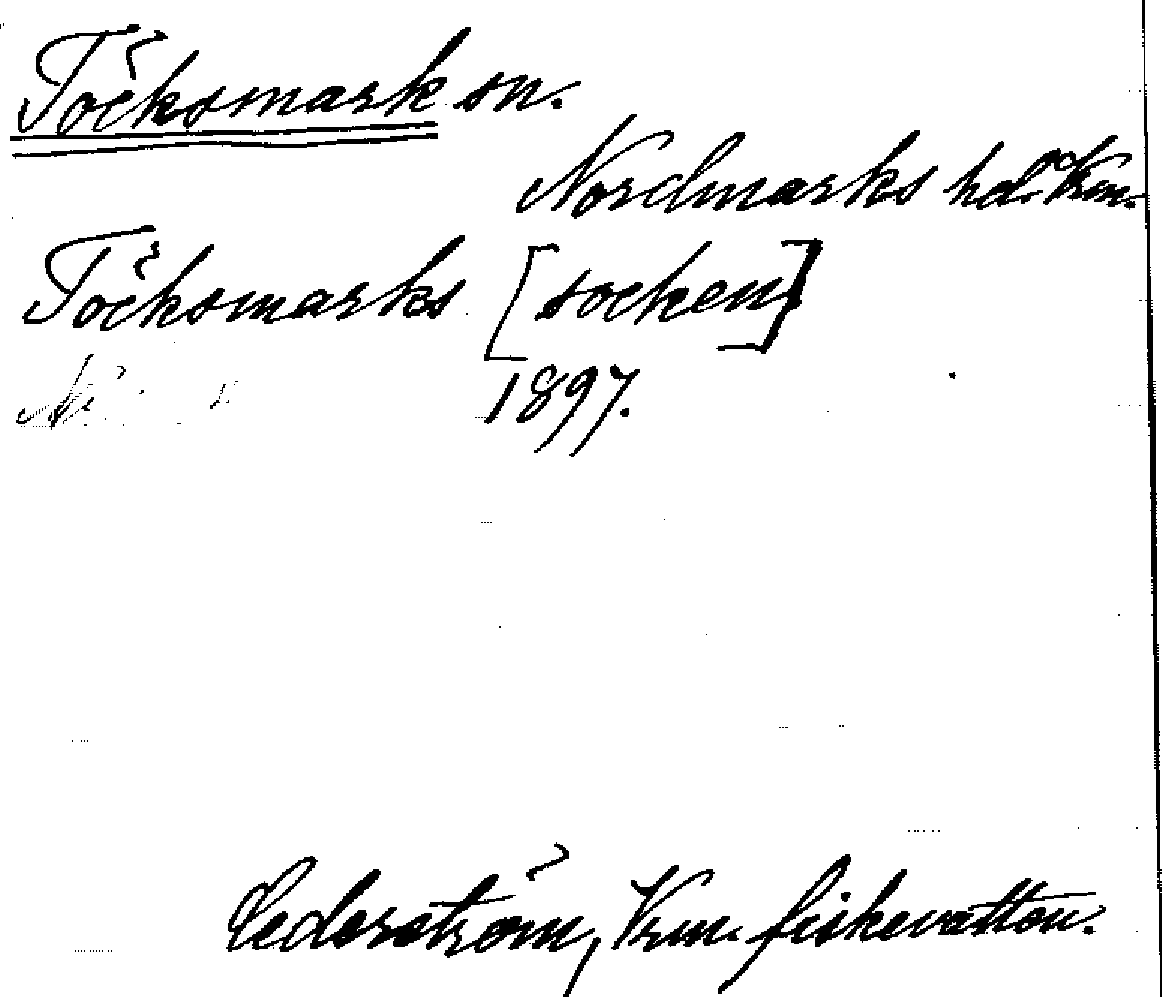 Töcksmark sn.
Nordmarks hd. Vrm.
Töcksmarks [socken]
1897.
Cederström, Vrm. fiskevatten.